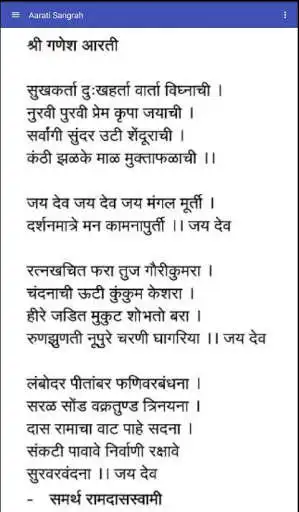 Aarati Sangrah
श्री गणेश आरती
सुखकर्ता दुःखहर्ता वार्ता विघ्नाची ।
नुरवी पुरवी प्रेम कृपा जयाची ।
सर्वांगी सुंदर उटी शेंदूराची ।
कंठी झळके माळ मुक्ताफळाची ।।
जय देव जय देव जय मंगल मूर्ती ।
दर्शनमात्रे मन कामनापुर्ती ।। जय देव
रत्नखचित फरा तुज गौरीकुमरा ।
चंदनाची ऊटी कुंकुम केशरा ।
हीरे जडित मुकुट शोभतो बरा ।
रुणझुणती नूपुरे चरणी घागरिया ।। जय देव
लंबोदर पीतांबर फणिवरबंधना ।
सरळ सोंड वक्रतुण्ड त्रिनयना ।
दास रामाचा वाट पाहे सदना ।
संकटी पावावे निर्वाणी रक्षावे
सुरवरवंदना ।। जय देव
- समर्थ रामदासस्वामी